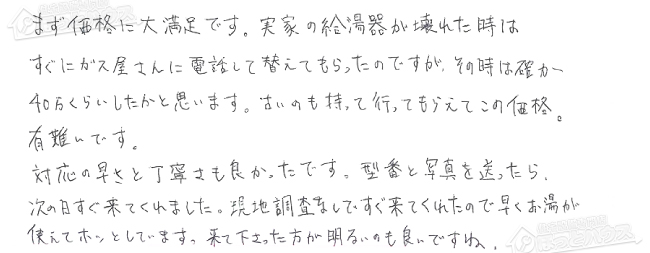 まず価格に大満足です。実家の給湯器が壊れた時は
すぐにガス屋さんに電話して替えてもらったのですが、その時は確か
40万くらいしたかと思います。古いのも持って行ってもらえてこの価格。
有難いです。
対応の早さと丁寧さも良かったです。型番と写真を送ったら、
次の日すぐ来てくれました。現地調査なしですぐ来てくれたので早くお湯が
使えてホッとしています。来て下さった方が明るいのも良いですね。